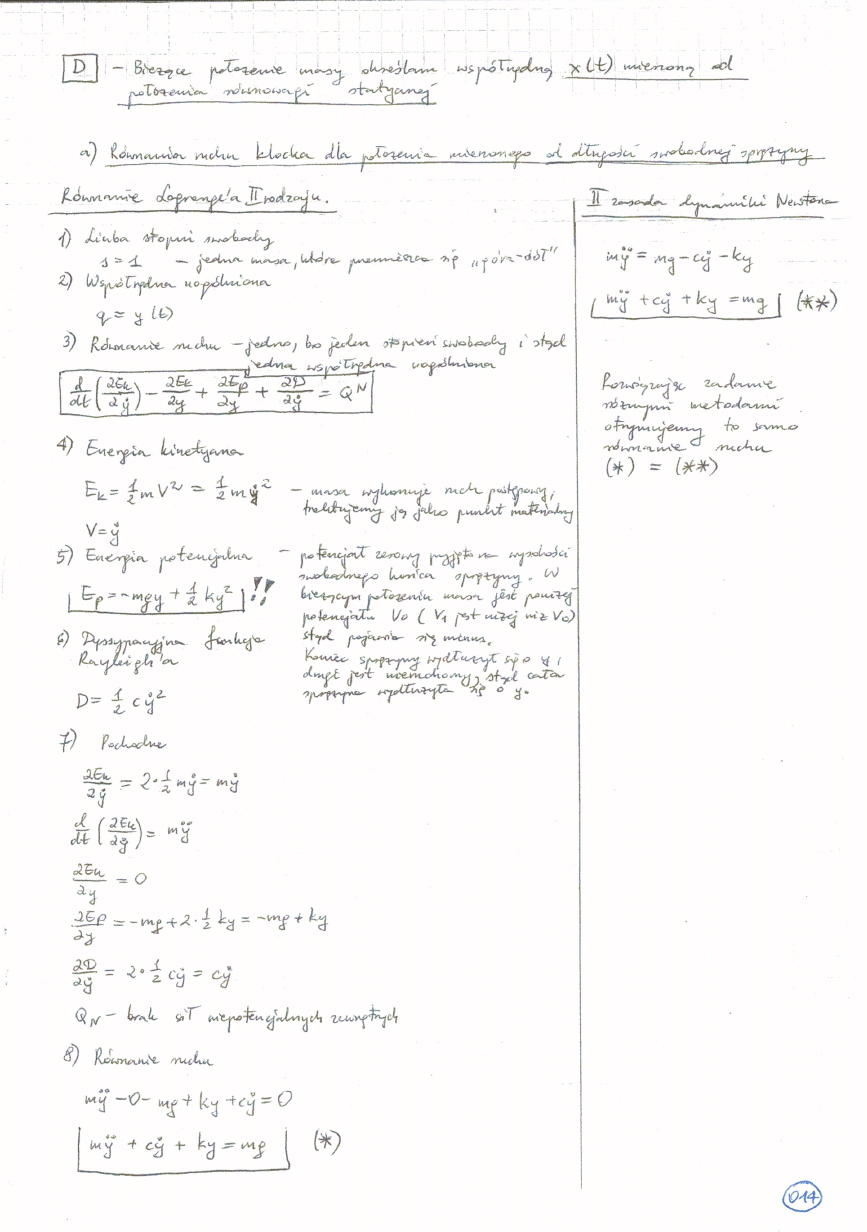 D - Bieżące położenie masy określam współrzędną x(t) mierzoną od
położenia równowagi statycznej
a) Równania ruchu klocka dla położenia mierzonego od długości swobodnej sprężyny
Równanie Lagrange'a II rodzaju.
1) Liczba stopni swobody
s = 1 - jedna masa, które przemieszcza się „góra-dół"
2) Współrzędna uogólniona
q = y(t)
3) Równanie ruchu - jedno, bo jeden stopień swobody i stąd
jedna współrzędna uogólniona
d/dt (∂Ek/∂ẏ) - ∂Ek/∂y + ∂Ep/∂y + ∂D/∂ẏ = Q^N
4) Energia kinetyczna
Ek = 1/2 m V² = 1/2 m ẏ² - masa wykonuje ruch postępowy,
traktujemy ją jako punkt materialny
V = ẏ
5) Energia potencjalna - potencjał zerowy przyjęto na wysokości
swobodnego końca sprężyny. W
Ep = -mgy + 1/2 ky² !! bieżącym położeniu masa jest poniżej
potencjału V0 (V1 jest niżej niż V0)
stąd pojawia się minus.
6) Dyssypacyjna funkcja
Rayleigh'a
Koniec sprężyny wydłużył się o y i
drugi jest nieruchomy, stąd cała
sprężyna wydłużyła się o y.
D = 1/2 cẏ²
7) Pochodne
∂Ek/∂ẏ = 2·1/2 mẏ = mẏ
d/dt (∂Ek/∂ẏ) = mÿ
∂Ek/∂y = 0
∂Ep/∂y = -mg + 2·1/2 ky = -mg + ky
∂D/∂ẏ = 2·1/2 cẏ = cẏ
QN - brak sił niepotencjalnych zewnętrznych
8) Równanie ruchu
mÿ - 0 - mg + ky + cẏ = 0
mÿ + cẏ + ky = mg (*)
II zasada dynamiki Newtona
mÿ = mg - cẏ - ky
mÿ + cẏ + ky = mg (**)
Rozwiązując zadanie
różnymi metodami
otrzymujemy to samo
równanie ruchu
(*) = (**)
D14